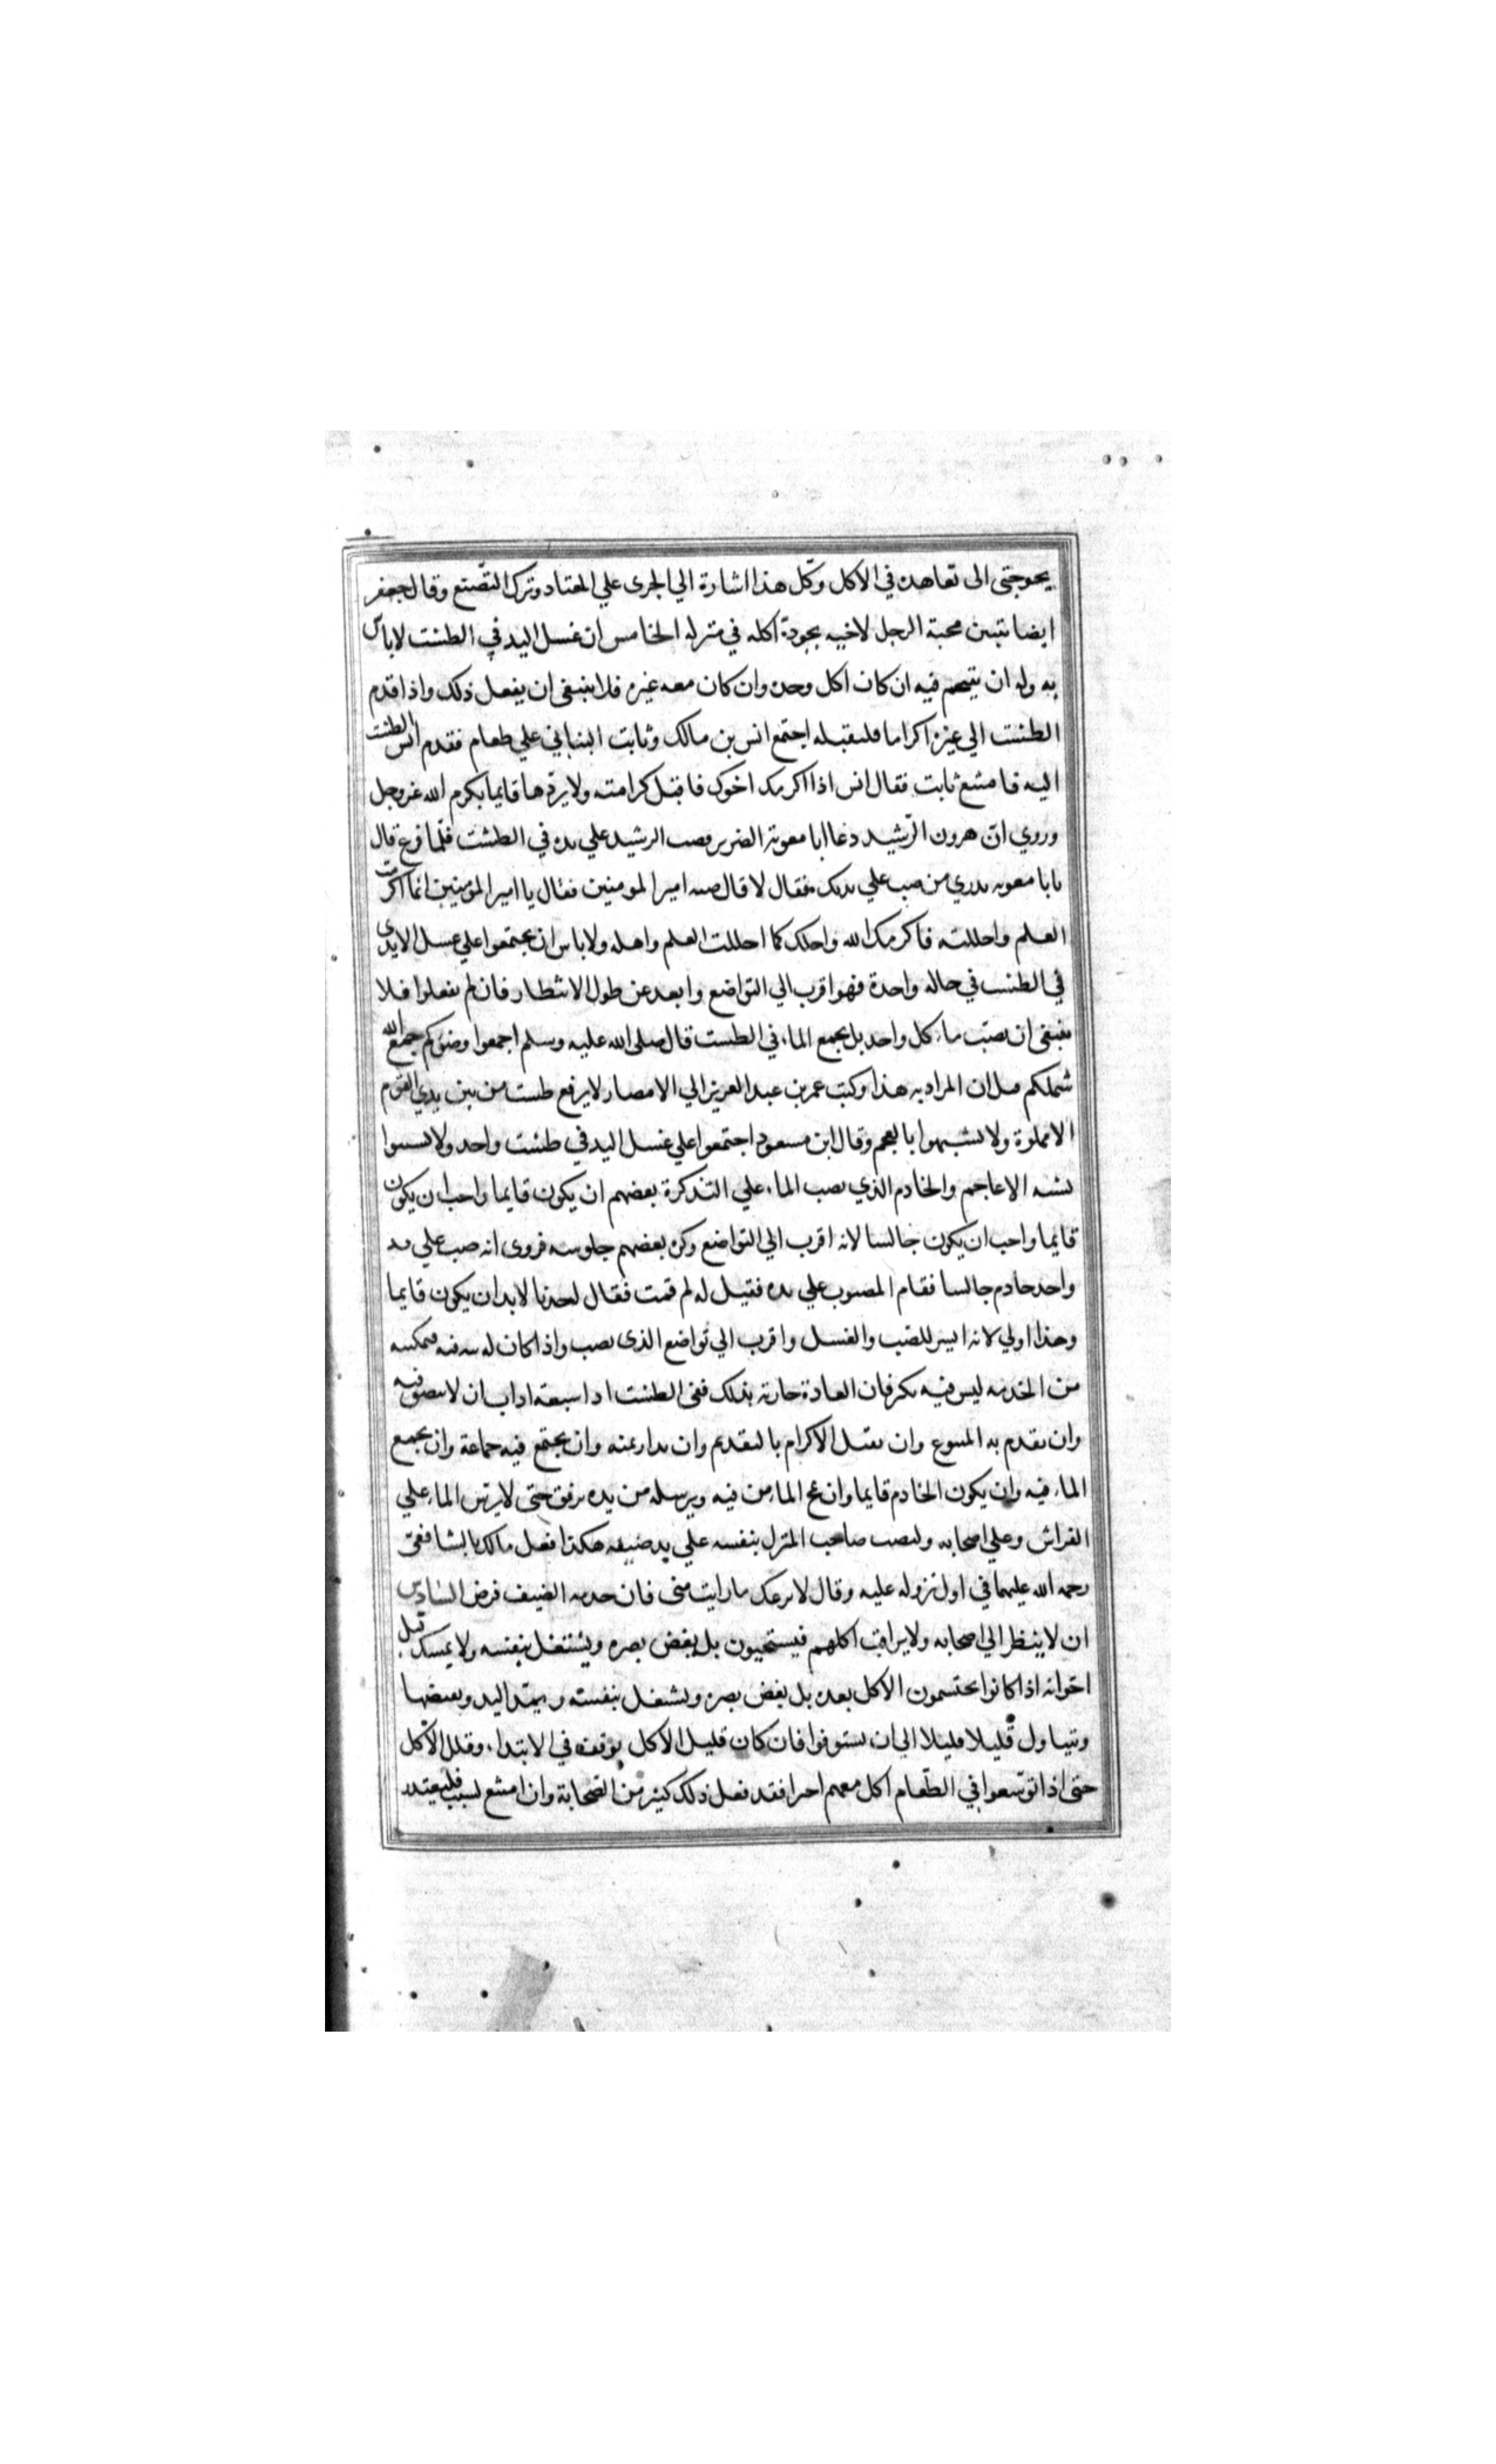 يحوجني الى تعاهده في الاكل وكل هذا اشارة الي الجرى علي المعتاد وترك التصنع وقال جعفر
ايضا تتبين محبة الرجل لاخيه بجودة اكله في منزله الخامس ان غسل اليد في الطشت لا باس
به وله ان يتنخم فيه ان كان اكل وحده وان كان معه غيره فلا ينبغى ان يفعل ذلك واذا قدم
الطشت الي غيره اكراما فليقبله اجتمع انس بن مالك وثابت البناني علي طعام فقدم انس الطشت
اليه فامتنع ثابت فقال انس اذا اكرمك اخوك فاقبل كرامته ولا يردها فانما يكرم الله عز وجل
وروي ان هرون الرشيد دعا ابا معوية الضرير وصب الرشيد علي يده في الطشت فلما فرغ قال
يابا معويه تدري من صب علي يديك فقال لا قال صبه امير المومنين فقال يا امير المؤمنين انما اكرمت
العلم واجللته فاكرمك الله واجلك كما اجللت العلم واهله ولا باس ان يجتمعوا علي غسل الايدى
في الطشت في حاله واحدة فهو اقرب الي التواضع وابعد عن طول الانتظار فان لم يفعلوا فلا
ينبغى ان يصب ماء كل واحد بل يجمع الماء في الطست قال صلى الله عليه وسلم اجمعوا وضوكم جمع الله
شملكم قيل ان المراد به هذا وكتب عمر بن عبد العزيز الي الامصار لا يرفع طست من بين يدي القوم
الا مملوة ولا تشبهوا بالعجم وقال ابن مسعود اجتمعوا علي غسل اليد في طشت واحد ولا تستنوا
بسنه الاعاجم والخادم الذي يصب الماء علي اليد كره بعضهم ان يكون قايما واحب ان يكون
قايما واحب ان يكون جالسا لانه اقرب الي التواضع وكره بعضهم جلوسه فروى انه صب علي يد
واحد خادم جالسا فقام المصبوب علي يده فقيل له لم قمت فقال احدنا لا بد ان يكون قايما
وهذا اولي لانه ايسر للصب والغسل واقرب الي تواضع الذى يصب واذا كان له نيه فيه فتمكينه
من الخدمه ليس فيه تكبر فان العادة جارية بذلك ففى الطشت اذا سبعة اداب ان لا يبصق فيه
وان يقدم به المتبوع وان يقبل الاكرام بالتقديم وان يدار يمنه وان يجتمع فيه جماعة وان يجمع
الماء فيه وان يكون الخادم قايما وان يمج الماء من فيه ويرسله من يده برفق حتى لا يرش الماء علي
الفراش وعلي اصحابه وليصب صاحب المنزل بنفسه علي يد ضيفه هكذا فعل مالك بالشافعي
رحمة الله عليهما في اول نزوله عليه وقال لا يرعك ما رايت منى فان خدمة الضيف فرض السادس
ان لا ينظر الي اصحابه ولا يراقب اكلهم فيستحيون بل يغض بصره ويشتغل بنفسه ولا يمسك قبل
اخوانه اذا كانوا يحتشمون الاكل بعده بل يغض بصره ويشغل بنفسه ويمد اليد ويقبضها
ويتناول قليلا قليلا الي ان يستوفوا فان كان قليل الاكل توقف في الابتداء وقلل الاكل
حتى اذا توسعوا في الطعام اكل معهم اخرا فقد فعل ذلك كثير من الصحابة وان امتنع لسبب فليعتذر